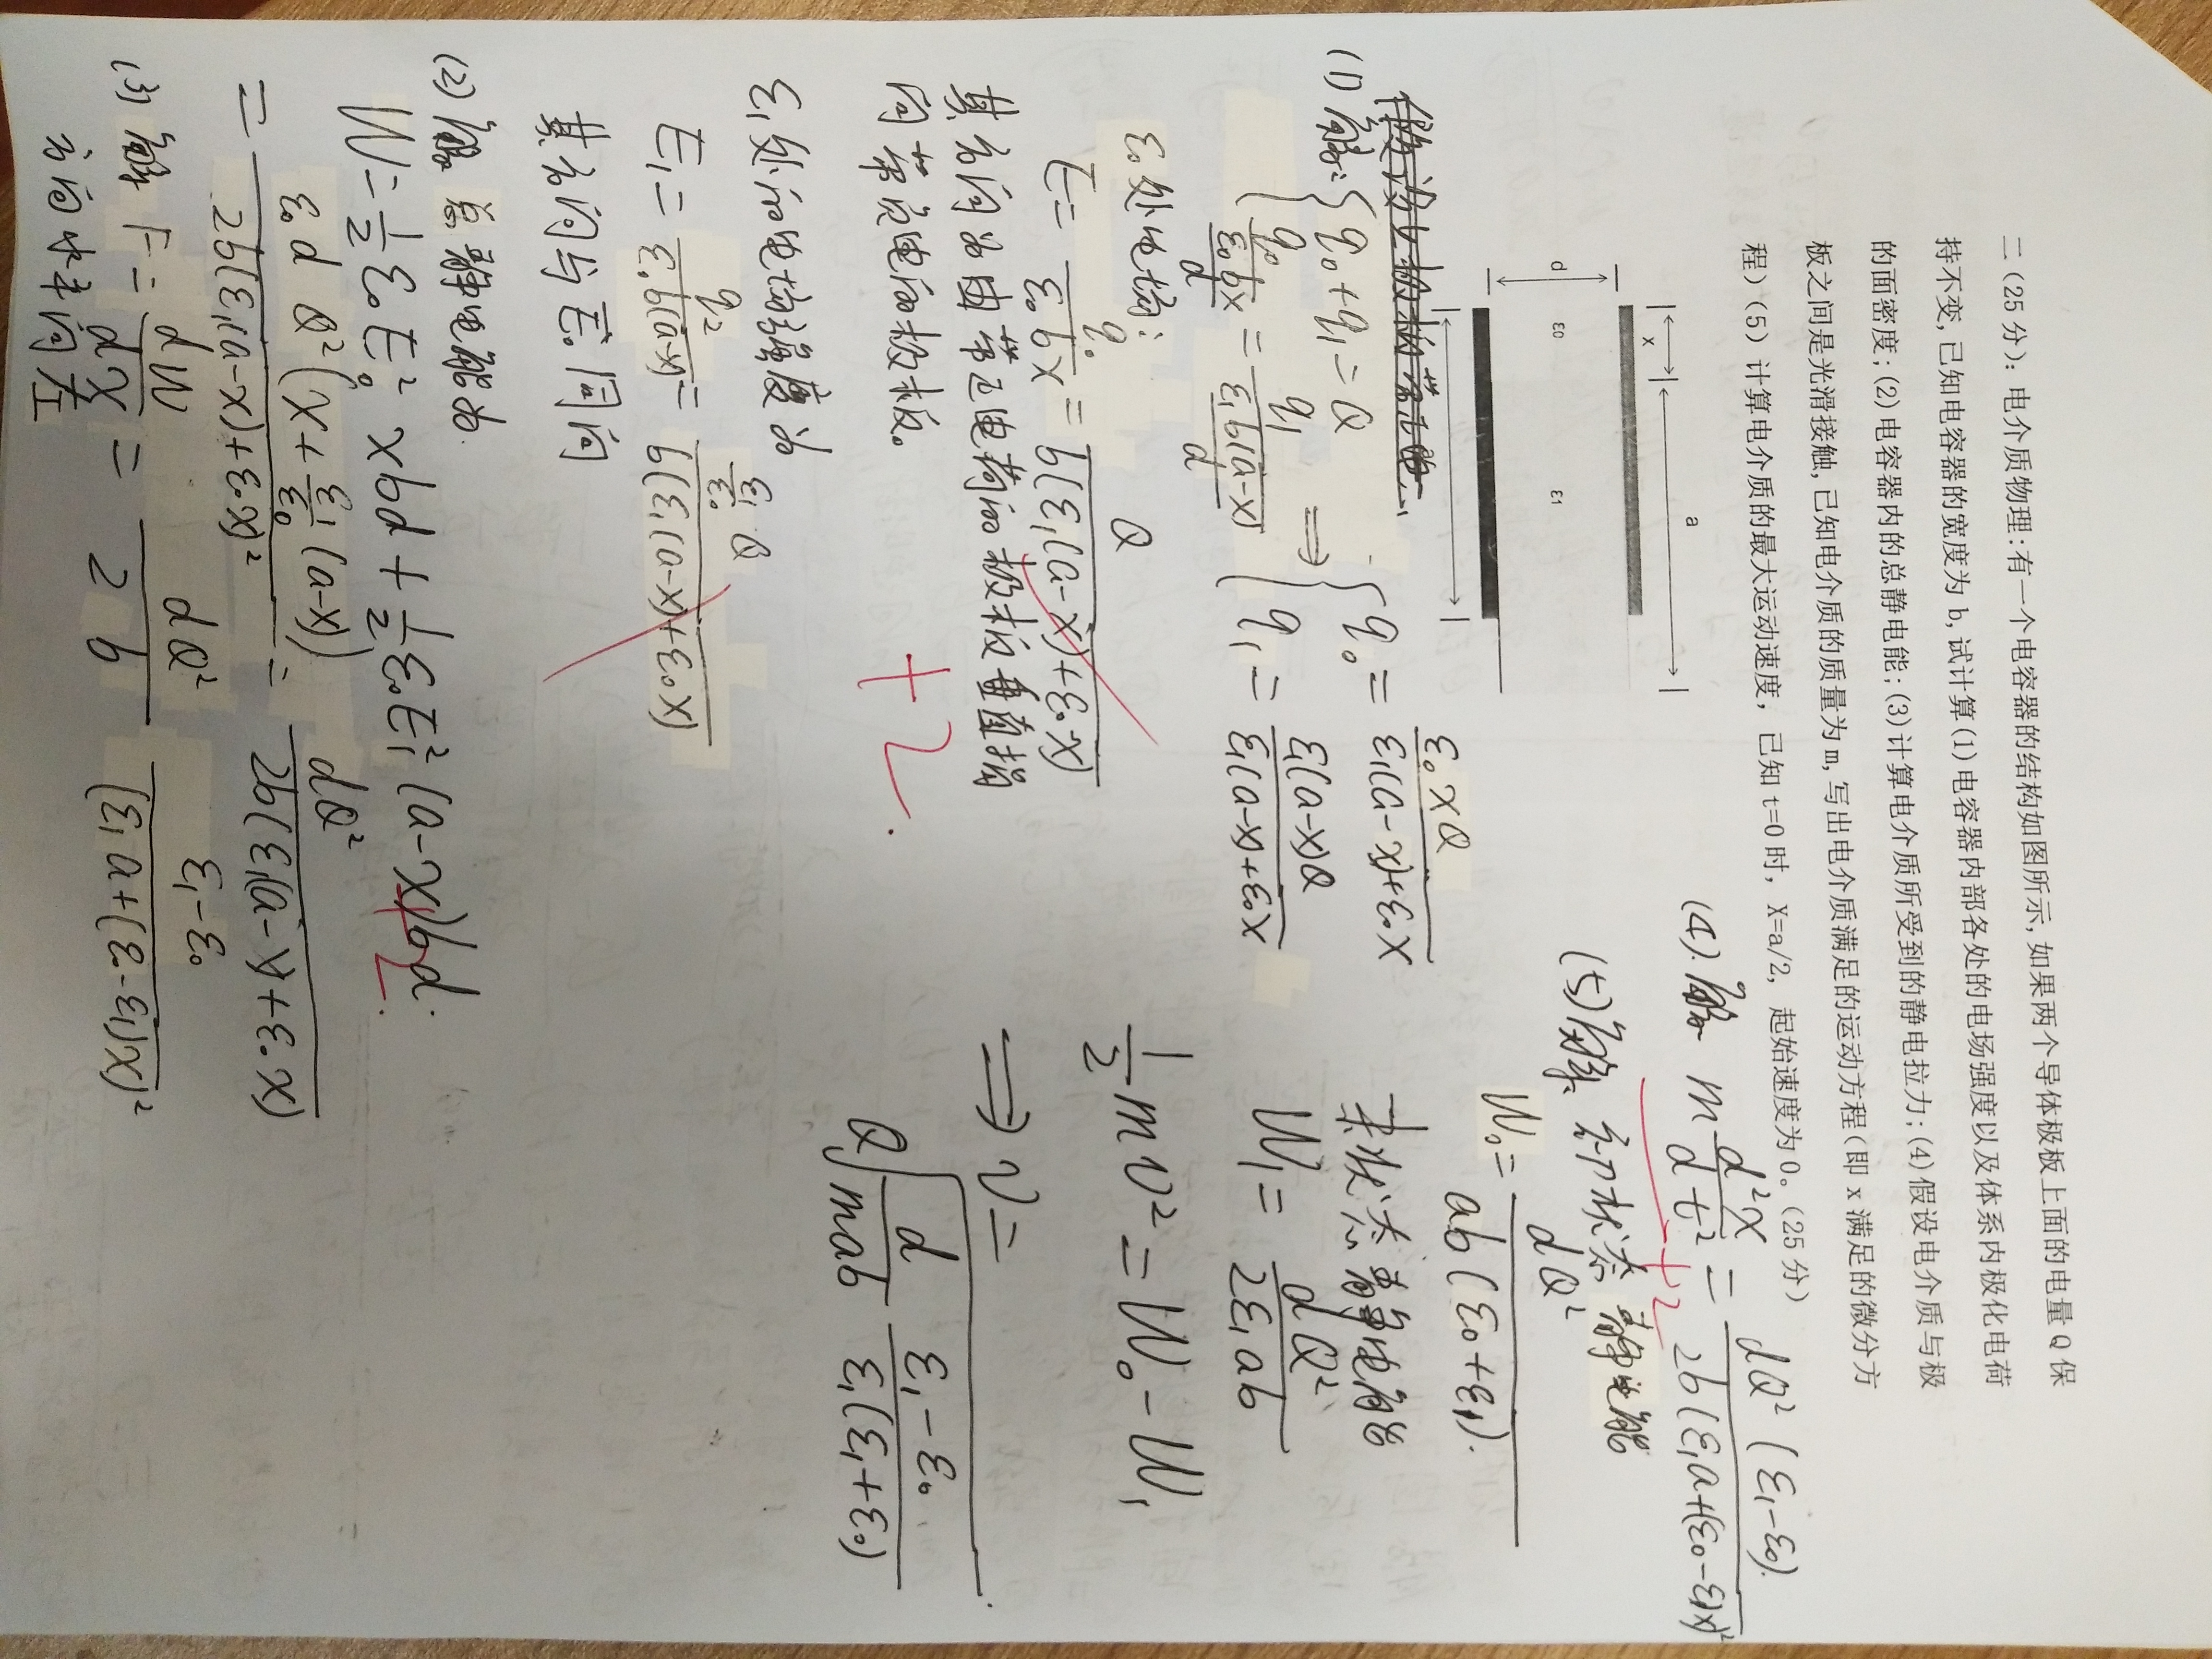 二(25分): 电介质物理:有一个电容器的结构如图所示,如果两个导体极板上面的电量Q保
持不变,已知电容器的宽度为b,试计算(1)电容器内部各处的电场强度以及体系内极化电荷
的面密度;(2)电容器内的总静电能;(3)计算电介质所受到的静电拉力;(4)假设电介质与极
板之间是光滑接触,已知电介质的质量为m,写出电介质满足的运动方程(即x满足的微分方
程)(5)计算电介质的最大运动速度, 已知t=0时, X=a/2, 起始速度为0。(25分)
a
x
d
ε0
ε1
假设上极板带正电
(1) 解: { q₀+q₁=Q
q₀/(ε₀bx/d) = q₁/(ε₁b(a-x)/d)
⟹ { q₀ = Qxε₀/(ε₁(a-x)+ε₀x)
q₁ = Q(a-x)ε₁/(ε₁(a-x)+ε₀x)
ε₀处电场:
E = q₀/(ε₀bx) = Q/(b(ε₁(a-x)+ε₀x))
其方向为由带正电荷的极板垂直指
向带负电的极板。
+2.
ε₁处的电场强度为
E₁ = q₂/(ε₀b(a-x)) = (ε₁/ε₀)Q/(b(ε₁(a-x)+ε₀x))
其方向与E₀同向
(2) 解 总静电能为
W = ½ε₀E₀² xbd + ½ε₀E₁²(a-x)bd.
+2.
= ε₀d Q²(x+(ε₁/ε₀)(a-x))/(2b(ε₁(a-x)+ε₀x)²) = dQ²/(2b(ε₁(a-x)+ε₀x))
(3) 解 F = dW/dx = dQ²/(2b) (ε₁-ε₀)/(ε₁a+(ε₀-ε₁)x)²
方向水平向左
(4). 解 m d²x/dt² = dQ²(ε₁-ε₀)/(2b(ε₁a+(ε₀-ε₁)x)²
+2
(5) 解. 初状态静电能
W₀ = dQ²/(ab(ε₀+ε₁)).
末状态静电能
W₁ = dQ²/(2ε₁ab)
½mv² = W₀-W₁
⟹ v =
Q√(d/(mab) (ε₁-ε₀)/(ε₁(ε₁+ε₀)))